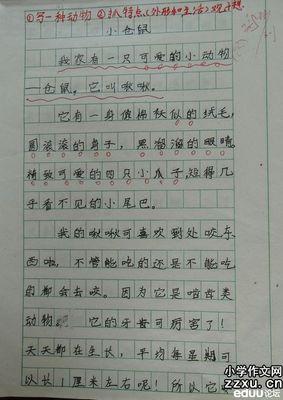 ①写一种动物 ②抓特点(外形和生活)
小仓鼠
我家有一只可爱的小动物
—仓鼠。它叫啾啾。
它有一身值棉袄似的绒毛，
圆滚滚的身子，黑溜溜的眼睛
精致可爱的四只小爪子，短得几
乎看不见的小尾巴。
我的啾啾可喜欢到处咬东
西啦，不管能吃的还是不能吃
的都会去咬。因为它是啮齿类
动物 它的牙齿可厉害了！
天天都在生长，平均每星期可
以长1厘米左右呢！所以它
小学作文网
zzxu.cn
eduu论坛